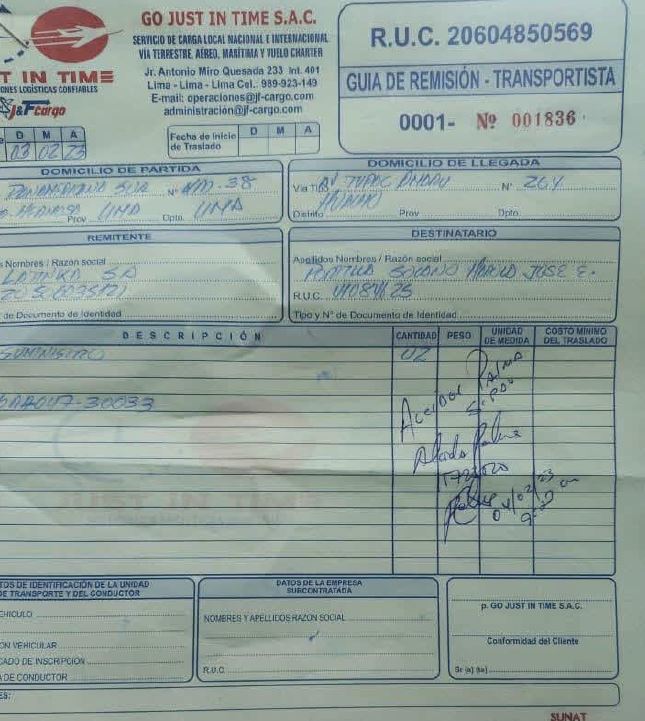 GO JUST IN TIME S.A.C.
SERVICIO DE CARGA LOCAL NACIONAL E INTERNACIONAL
VIA TERRESTRE, AÉREO, MARÍTIMA Y VUELO CHARTER
Jr. Antonio Miro Quesada 233 Int. 401
Lima - Lima - Lima Cel.: 989-923-149
E-mail: operaciones@jf-cargo.com
administración@jf-cargo.com
T IN TIME
ONES LOGÍSTICAS CONFIABLES
J&F cargo
R.U.C. 20604850569
GUIA DE REMISIÓN - TRANSPORTISTA
0001- Nº 001836
D M A
03 02 23
Fecha de Inicio de Traslado D M A
DOMICILIO DE PARTIDA
PANAMERICANA SUR Nº KM. 38
Prov LIMA Dpto. LIMA
DOMICILIO DE LLEGADA
AV TUPAC AMARU Nº 264
Distrito Prov Dpto.
REMITENTE
s Nombres / Razón social
S.A
de Documento de Identidad
DESTINATARIO
Apellidos Nombres / Razón social
HAROLD JOSE E.
R.U.C.
Tipo y Nº de Documento de Identidad
DESCRIPCIÓN CANTIDAD PESO UNIDAD DE MEDIDA COSTO MINIMO DEL TRASLADO
SUMINISTRO 02
047-30033
04/02/23
TOS DE IDENTIFICACIÓN DE LA UNIDAD
E TRANSPORTE Y DEL CONDUCTOR
EHICULO
ON VEHICULAR
CADO DE INSCRIPCIÓN
A DE CONDUCTOR
DATOS DE LA EMPRESA
SUBCONTRATADA
NOMBRES Y APELLIDOS RAZON SOCIAL
R.U.C
p. GO JUST IN TIME S.A.C.
Conformidad del Cliente
Sr (a) (ta)
ES:
SUNAT